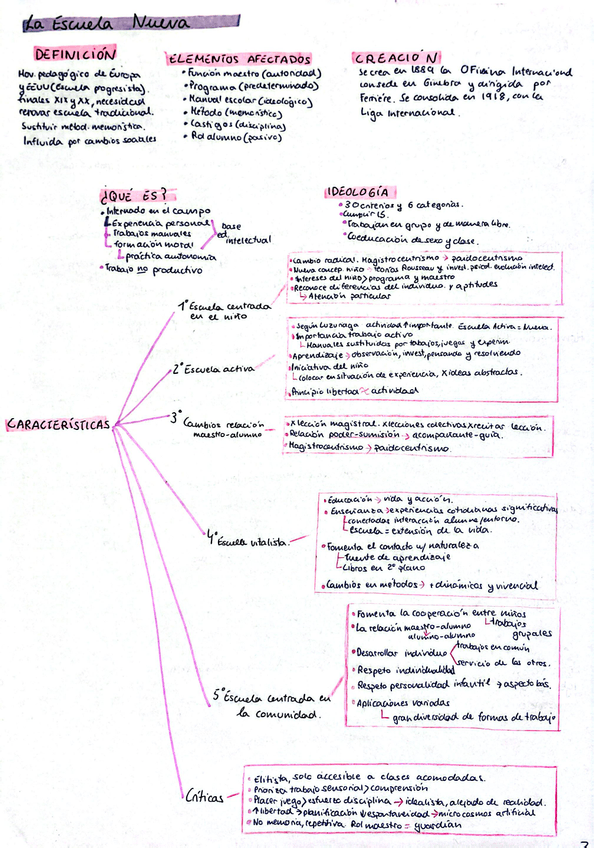 La Escuela Nueva
DEFINICIÓN
Mov. pedagógico de Europa
y EEUU (escuela progresista).
finales XIX y XX, necesidad
renovar escuela tradicional.
Sustituir métod. memorística.
Influida por cambios sociales
ELEMENTOS AFECTADOS
• Función maestro (autoridad)
• Programa (predeterminado)
• Manual escolar (ideológico)
• Método (memorístico)
• Castigos (disciplina)
• Rol alumno (pasivo)
CREACIÓN
Se crea en 1889 la Oficina Internacional
con sede en Ginebra y dirigida por
Ferrière. Se consolida en 1918, con la
Liga Internacional.
¿QUÉ ES?
• Internado en el campo
Experiencia personal
Trabajos manuales
formación moral
práctica autonomía
base
ed.
intelectual
• Trabajo no productivo
IDEOLOGÍA
• 30 criterios y 6 categorías.
• Cumplir 15.
• Trabajan en grupo y de manera libre.
• Coeducación de sexo y clase.
CARACTERÍSTICAS
1º Escuela centrada
en el niño
• Cambio radical. Magistrocentrismo → paidocentrismo
• Nueva concep niño → teorías Rousseau y invest. psicol. evolución intelect.
• Intereses del niño > programa y maestro
• Reconoce diferencias del individuo y aptitudes
↳ Atención particular
2º Escuela activa
• Según Luzuriaga actividad ↑ importante. Escuela Activa = Nueva.
• Importancia trabajo activo
Manuales sustituidos por trabajos, juegos y experim.
• Aprendizaje → observación, invest, pensando y resolviendo
• Iniciativa del niño
colocar en situación de experiencia, X ideas abstractas.
• Principio libertad ~ actividad
3º Cambios relación
maestro-alumno
• X lección magistral. X lecciones colectivas X recitar lección.
• Relación poder-sumisión → acompañante-guía.
• Magistrocentrismo → paidocentrismo.
4º Escuela vitalista.
• Educación → vida y acción.
• Enseñanza → experiencias cotidianas significativas
conectadas interacción alumno/entorno.
Escuela = extensión de la vida.
• Fomenta el contacto w/ naturaleza
fuente de aprendizaje
Libros en 2º plano
• Cambios en métodos → + dinámicos y vivencial
5º Escuela centrada en
la comunidad.
• Fomenta la cooperación entre niños
trabajos
grupales
• La relación maestro-alumno
alumno-alumno
• Desarrollar individuo
trabajos en común
servicio de los otros.
• Respeto individualidad
• Respeto personalidad infantil → aspecto bás.
• Aplicaciones variadas
gran diversidad de formas de trabajo
Críticas
• Elitista, solo accesible a clases acomodadas.
• Prioriza trabajo sensorial > comprensión
• Placer juego > esfuerzo disciplina → idealista, alejado de realidad.
• ↑ libertad → planificación ↓ espontaneidad → microcosmos artificial
• No memoria, repetitiva Rol maestro = guardián